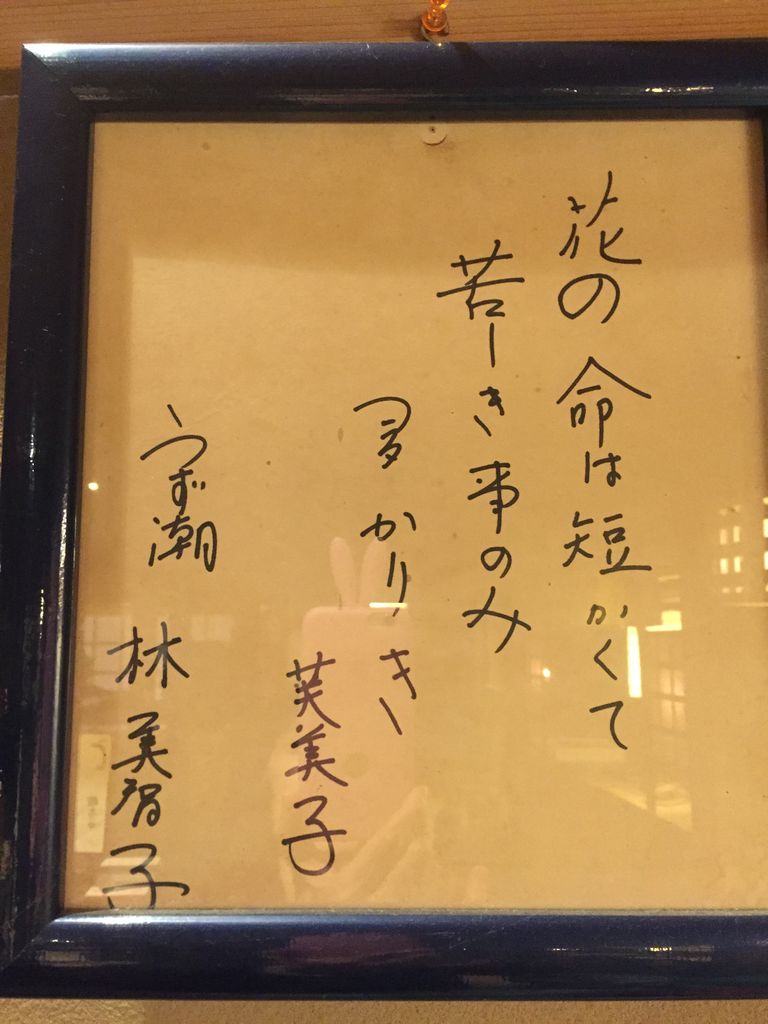 花の命は短かくて
苦しき事のみ
多かりき
芙美子
うず潮
林美智子